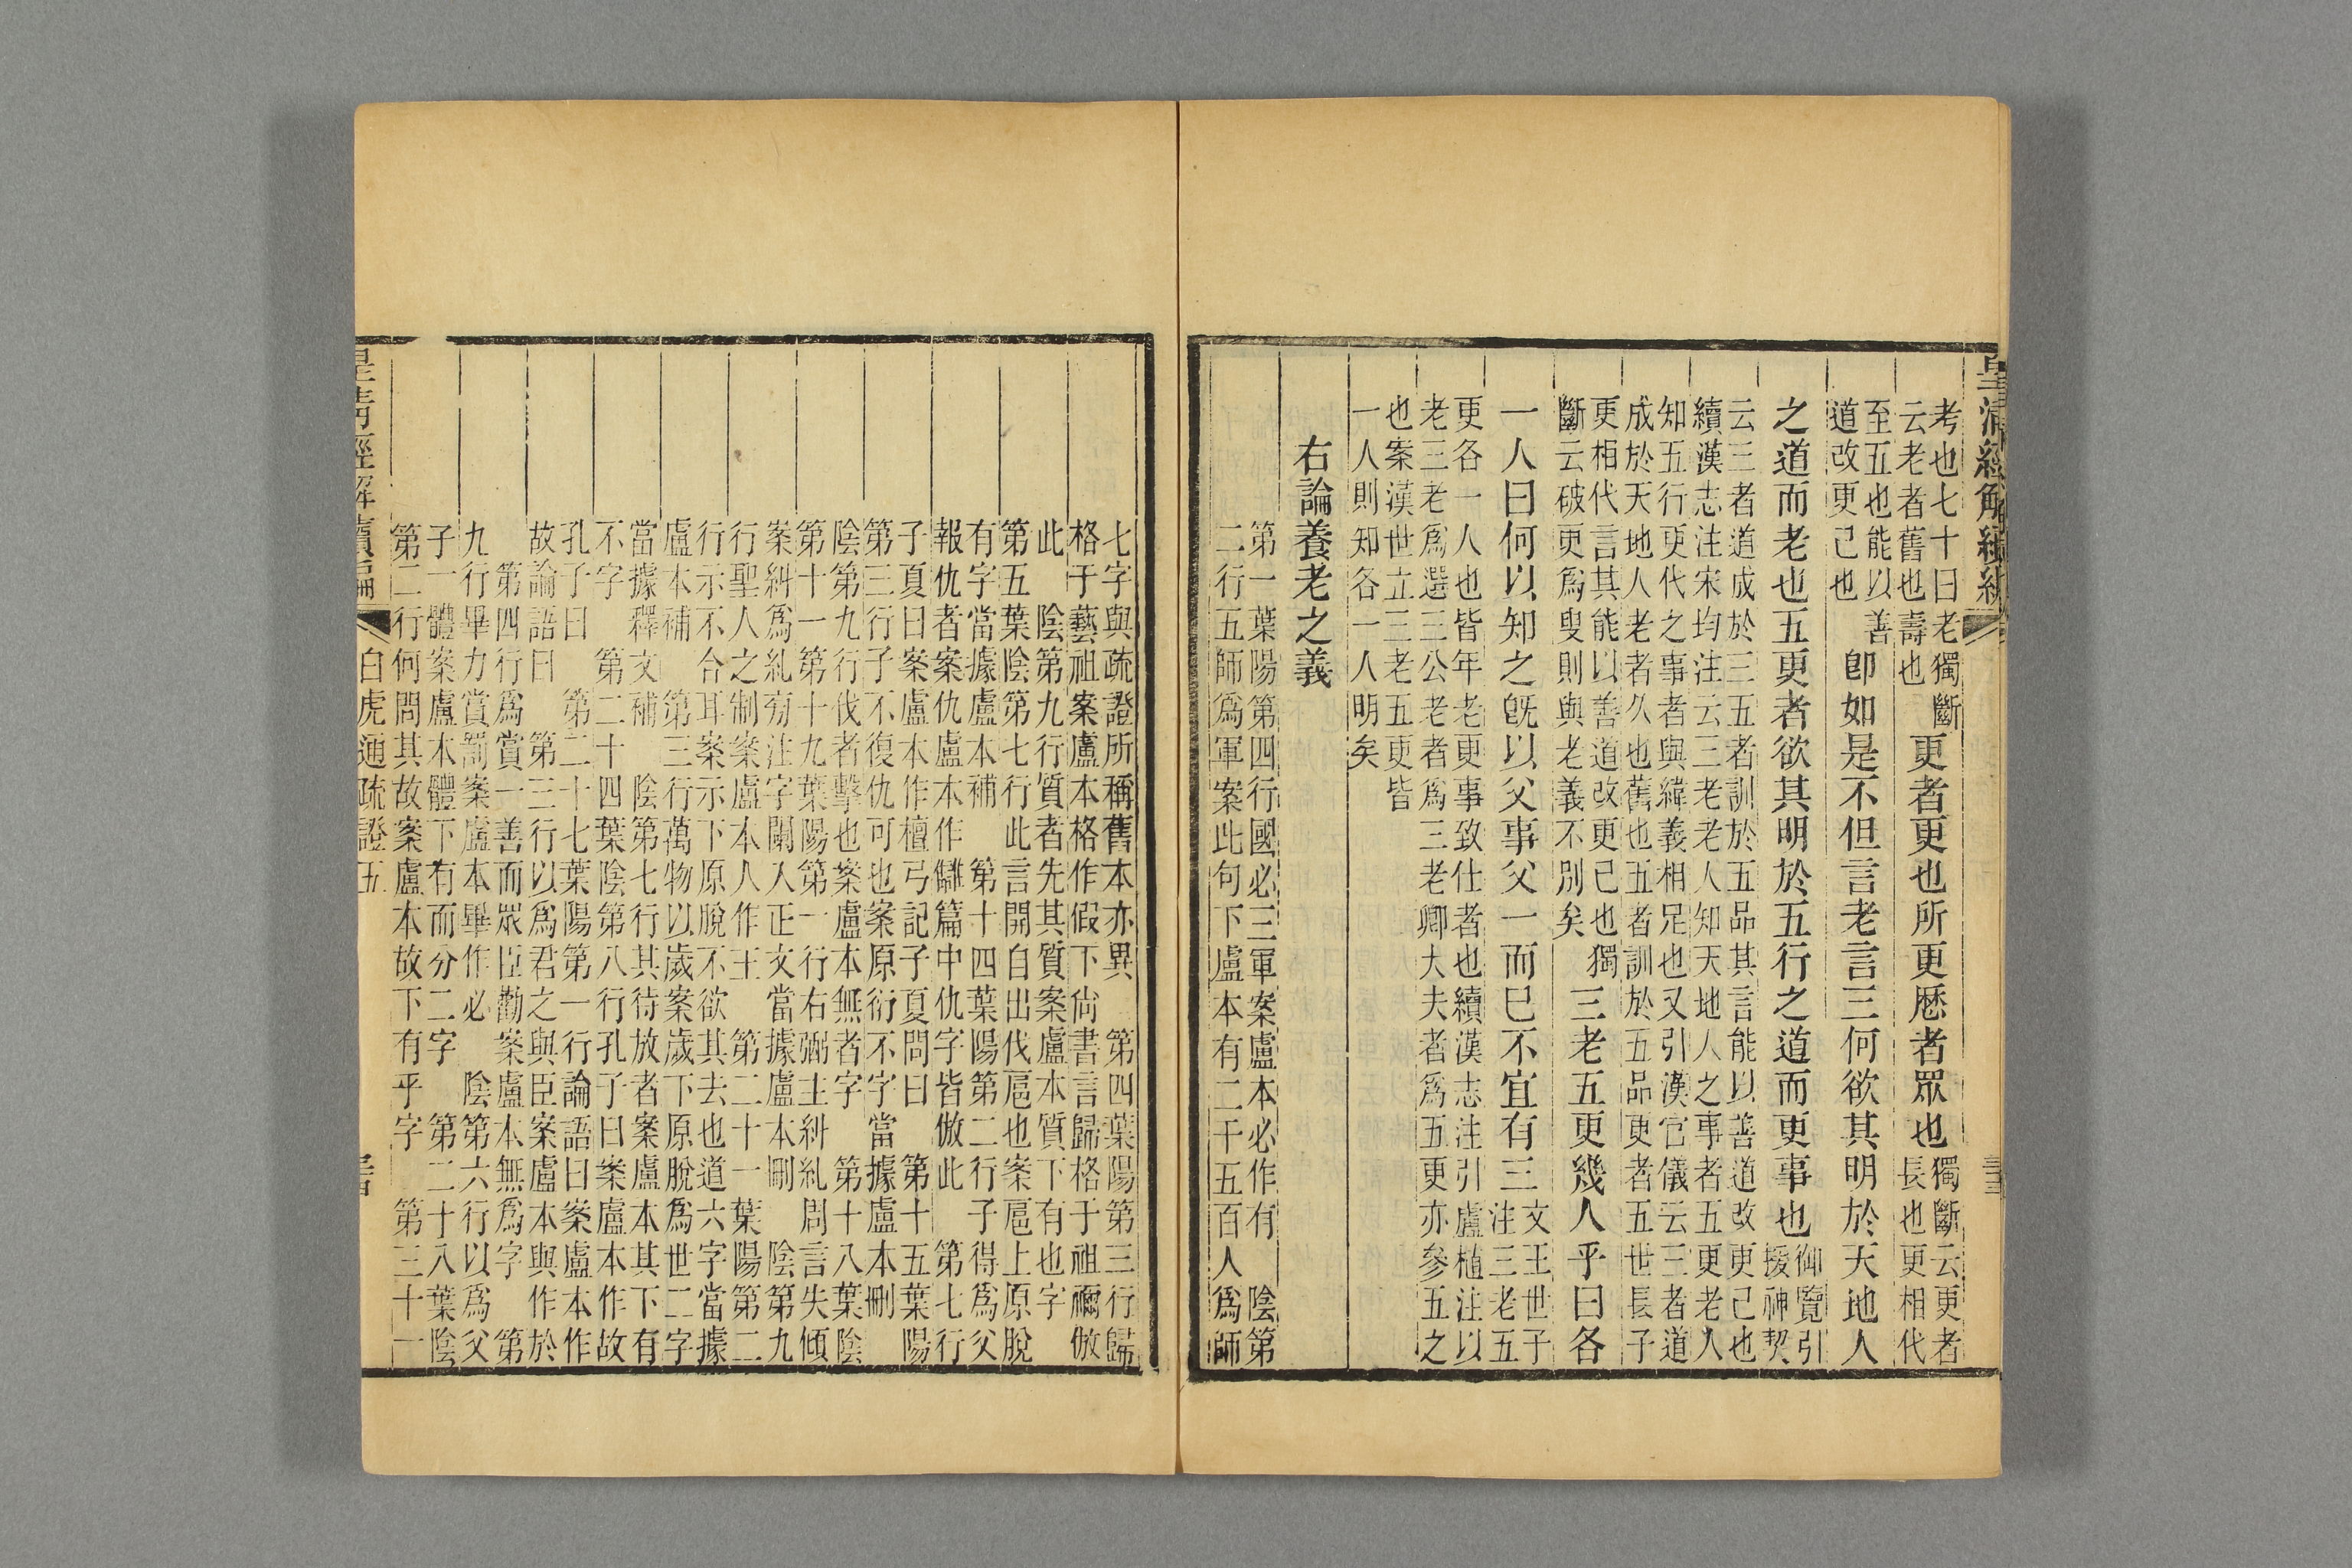 皇清經解續編
考也七十曰老獨斷
云老者舊也壽也
更者更也所更歷者眾也
獨斷云更者
長也更相代
至五也能以善
道改更己也
卽如是不但言老言三何欲其明於天地人
之道而老也五更者欲其明於五行之道而更事也
御覽引
援神契
云三者道成於三五者訓於五品其言能以善道改更己也
續漢志注宋均注云三老老人知天地人之事者五更老人
知五行更代之事者與緯義相足也又引漢官儀云三者道
成於天地人老者久也舊也五者訓於五品更者五世長子
更相代言其能以善道改更己也獨
斷云破更爲叟則與老義不別矣
三老五更幾人乎曰各
一人曰何以知之旣以父事父一而已不宜有三
文王世子
注三老五
更各一人也皆年老更事致仕者也續漢志注引盧植注以
老三老爲選三公老者爲三老卿大夫者爲五更亦參五之
也案漢世立三老五更皆
一人則知各一人明矣
右論養老之義
第一葉陽第四行國必三軍案盧本必作有　陰第
二行五師爲軍案此句下盧本有二千五百人爲師
七字與疏證所稱舊本亦異　第四葉陽第三行歸
格于藝祖案盧本格作假下尙書言歸格于祖禰倣
此　陰第九行質者先其質案盧本質下有也字
第五葉陰第七行此言開自出伐扈也案扈上原脫
有字當據盧本補　第十四葉陽第二行子得爲父
報仇者案仇盧本作讎篇中仇字皆倣此　第七行
子夏曰案盧本作檀弓記子夏問曰　第十五葉陽
第三行子不復仇可也案原衍不字當據盧本刪
陰第九行伐者擊也案盧本無者字　第十八葉陰
第十一第十九葉陽第一行右弼主糾糺周言失傾
案糾爲糺旁注字闌入正文當據盧本刪　陰第九
行聖人之制案盧本人作王　第二十一葉陽第二
行示不合耳案示下原脫不欲其去也道六字當據
盧本補　第三行萬物以歲案歲下原脫爲世二字
當據釋文補　陰第七行其待放者案盧本其下有
不字　第二十四葉陰第八行孔子曰案盧本作故
孔子曰　第二十七葉陽第一行論語曰案盧本作
故論語曰　第三行以爲君之與臣案盧本與作於
第四行爲賞一善而眾臣勸案盧本無爲字　第
九行畢力賞罰案盧本畢作必　陰第六行以爲父
子一體案盧本體下有而分二字　第二十八葉陰
第二行何問其故案盧本故下有乎字　第三十一
皇淸經解續編
白虎通疏證五